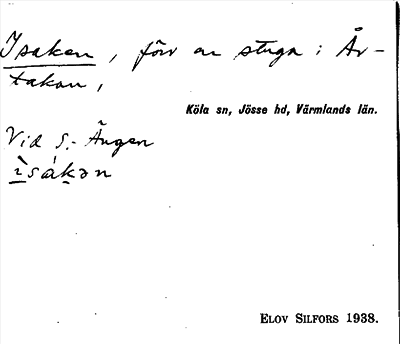 Isaken, förr en stuga i År-
takan,
Köla sn, Jösse hd, Värmlands län.
Vid S.-Ängen
ìsákən
ELOV SILFORS 1938.